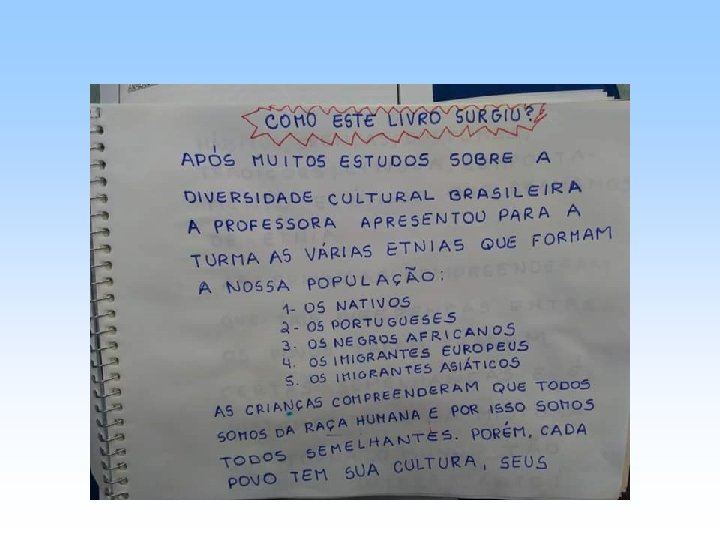 COMO ESTE LIVRO SURGIU?
APÓS MUITOS ESTUDOS SOBRE A
DIVERSIDADE CULTURAL BRASILEIRA
A PROFESSORA APRESENTOU PARA A
TURMA AS VÁRIAS ETNIAS QUE FORMAM
A NOSSA POPULAÇÃO:
1- OS NATIVOS
2- OS PORTUGUESES
3. OS NEGROS AFRICANOS
4. OS IMIGRANTES EUROPEUS
5. OS IMIGRANTES ASIÁTICOS
AS CRIANÇAS COMPREENDERAM QUE TODOS
SOMOS DA RAÇA HUMANA E POR ISSO SOMOS
TODOS SEMELHANTES. PORÉM, CADA
POVO TEM SUA CULTURA, SEUS